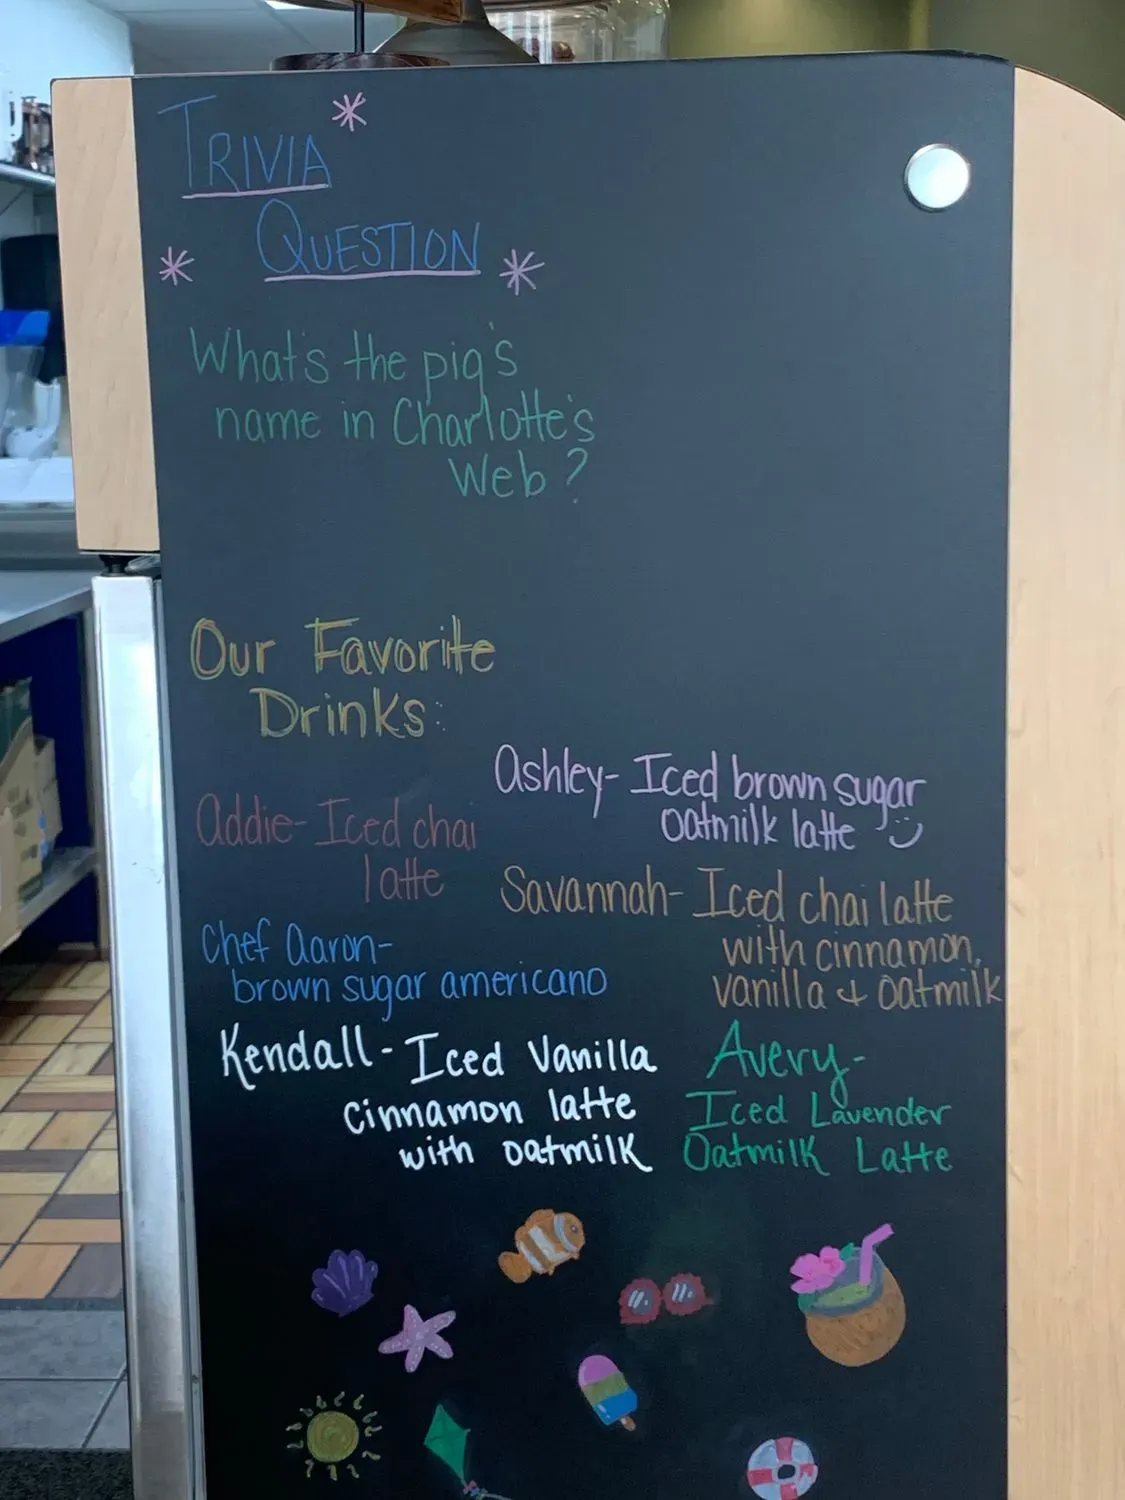 TRIVIA
QUESTION
What's the pig's
name in Charlotte's
Web?
Our Favorite
Drinks:
Ashley- Iced brown sugar
oatmilk latte
Addie- Iced chai
latte
Savannah- Iced chai latte
with cinnamon,
vanilla & oatmilk
Chef Aaron-
brown sugar americano
Kendall- Iced Vanilla
cinnamon latte
with oatmilk
Avery-
Iced Lavender
Oatmilk Latte